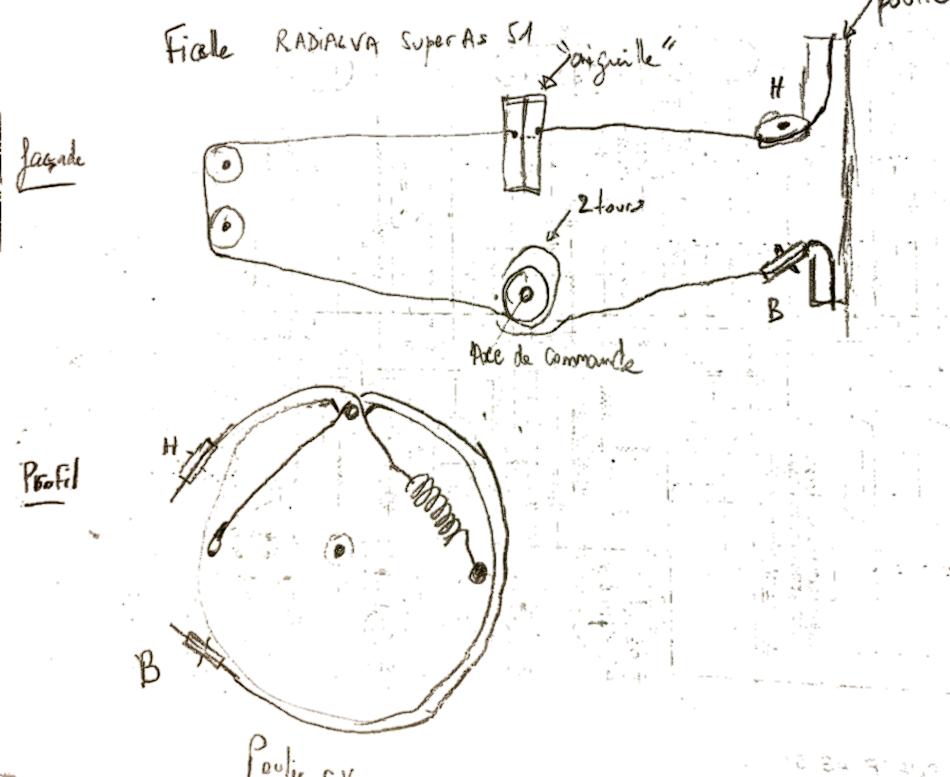 Ficelle RADIALVA Super As 51
poulie
"aiguille"
H
façade
2 tours
B
Axe de commande
H
Profil
B
Poulie CV